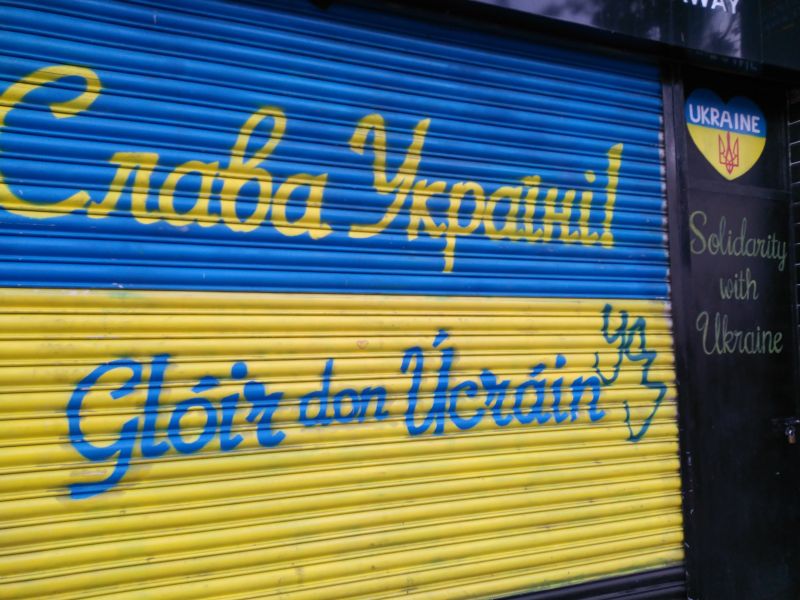 WAY
Слава Україні!
Glóir don Úcráin
UKRAINE
Solidarity
with
Ukraine